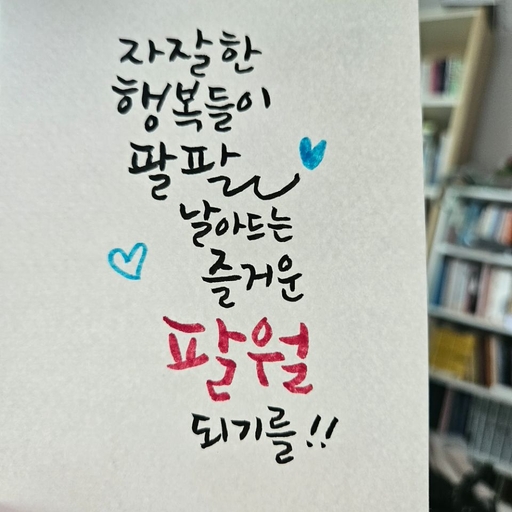 자잘한
행복들이
팔팔
날아드는
즐거운
팔월
되기를!!